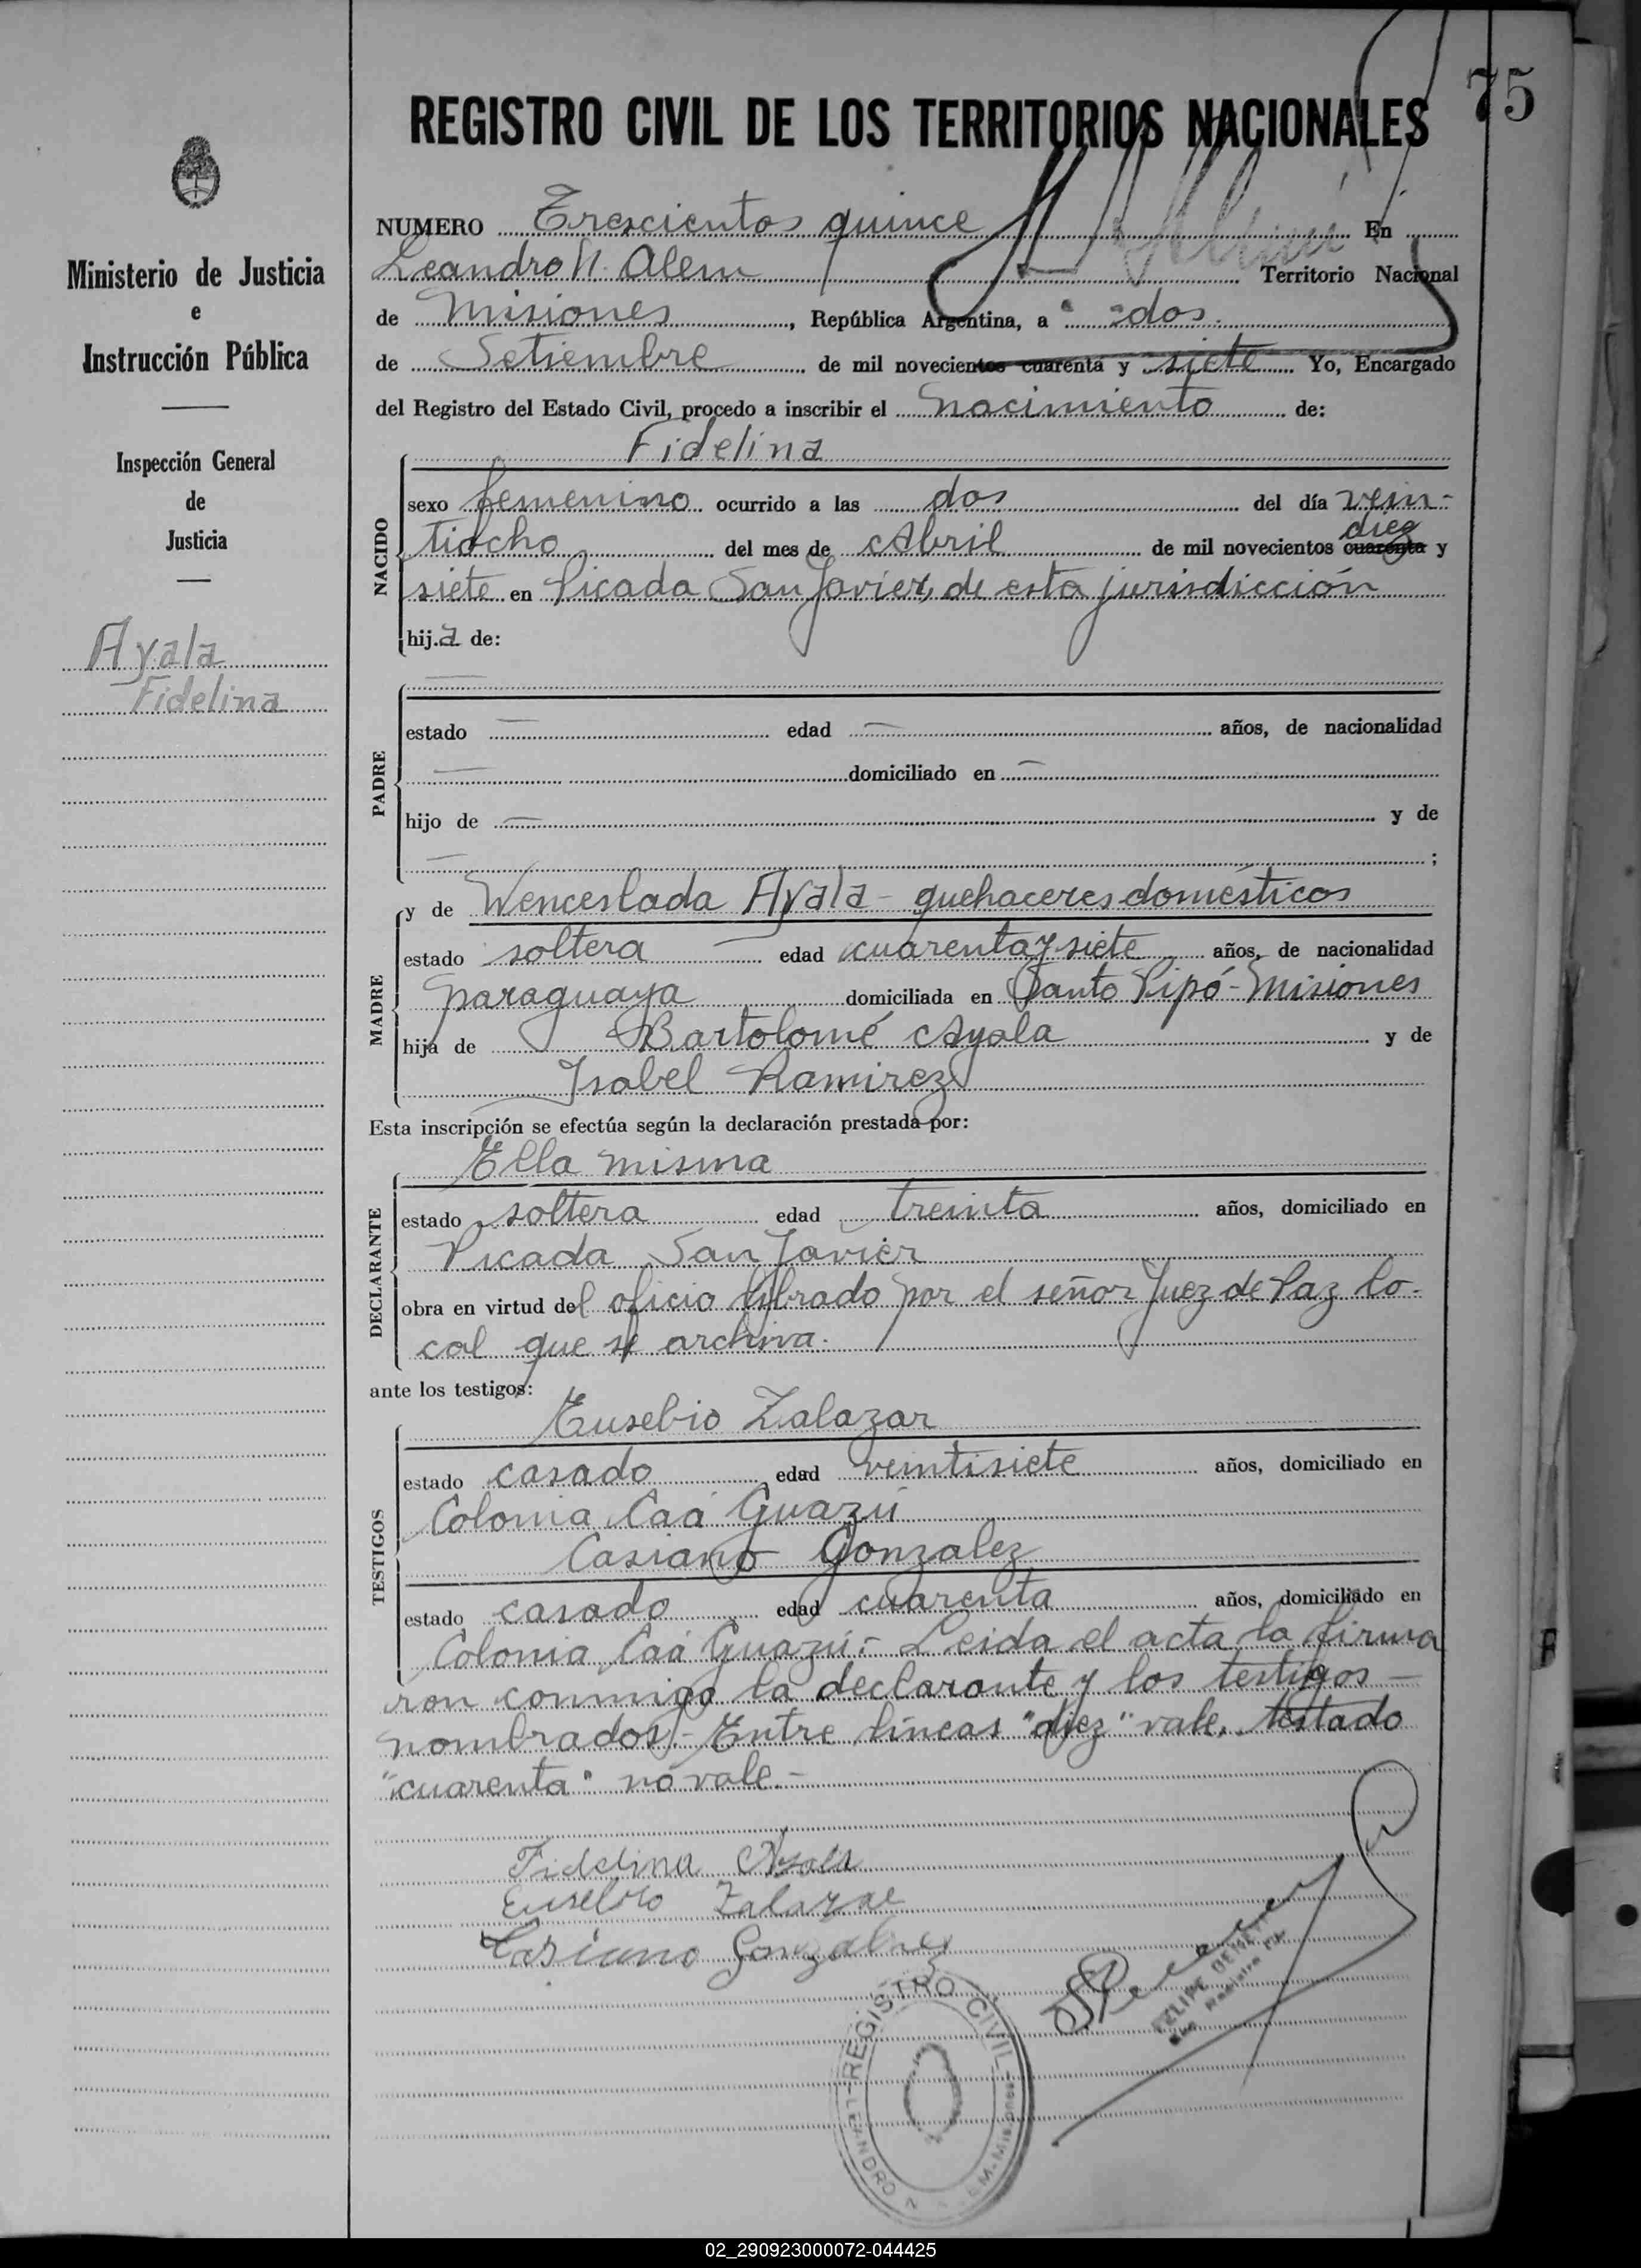 75
REGISTRO CIVIL DE LOS TERRITORIOS NACIONALES
Ministerio de Justicia
e
Instrucción Pública
Inspección General
de
Justicia
Ayala
Fidelina
NUMERO Trescientos quince En
Leandro N. Alem Territorio Nacional
de Misiones, República Argentina, a dos
de Setiembre de mil novecientos cuarenta y siete Yo, Encargado
del Registro del Estado Civil, procedo a inscribir el nacimiento de:
Fidelina
NACIDO
sexo femenino ocurrido a las dos del día vein-
diez
tiocho del mes de Abril de mil novecientos cuarenta y
siete en Picada San Javier, de esta jurisdicción
hija de:
PADRE
estado — edad — años, de nacionalidad
— domiciliado en —
hijo de — y de
— ;
MADRE
y de Wenceslada Ayala - quehaceres domésticos
estado soltera — edad cuarenta y siete años, de nacionalidad
paraguaya domiciliada en Santo Pipó - Misiones
hija de Bartolomé Ayala y de
Isabel Ramirez
Esta inscripción se efectúa según la declaración prestada por:
Ella misma
DECLARANTE
estado soltera edad treinta años, domiciliado en
Picada San Javier
obra en virtud del oficio librado por el señor Juez de Paz lo-
cal que se archiva.
ante los testigos:
Eusebio Zalazar
TESTIGOS
estado casado edad veintisiete años, domiciliado en
Colonia Caá Guazú
Casiano Gonzalez
estado casado edad cuarenta años, domiciliado en
Colonia Caá Guazú.- Leida el acta la firma
ron conmigo la declarante y los testigos —
nombrados.- Entre líneas "diez" vale. testado
"cuarenta" no vale.-
Fidelina Ayala
Eusebio Zalazar
Casiano Gonzalez
REGISTRO CIVIL
LEANDRO N. ALEM-Misiones
FELIPE
02_290923000072-044425